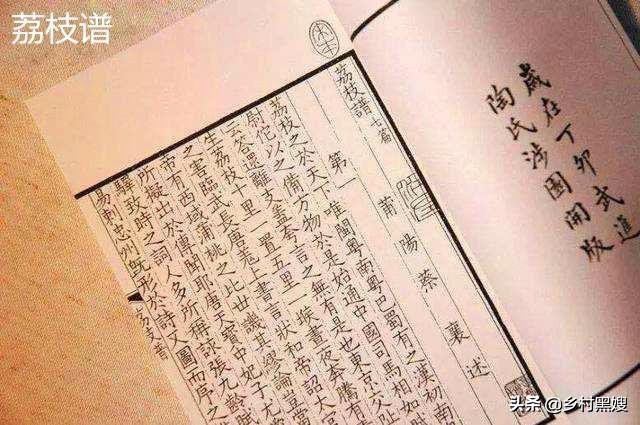 荔枝谱
歲在丁卯武進
陶氏涉園開版
荔枝譜 七篇
莆陽蔡襄述
第一
荔枝之於天下唯閩粵南粵巴蜀有之漢初南
尉佗以之備方物於是始通中國司馬相如賦
云荅遝離支蓋夸言之無有是也東京交趾
生荔枝十里一置五里一堠晝夜奔騰有
之害臨武長唐羌上書言狀和帝詔太官
帝有西域蒲桃之比世譏其繆論豈當
所擬出於傳聞耶唐天寶中妃子尤
驛致時之詞人多所稱詠張九齡賦
易刺忠州既形於詩又圖而序之
荔枝譜
头条 @乡村黑嫂